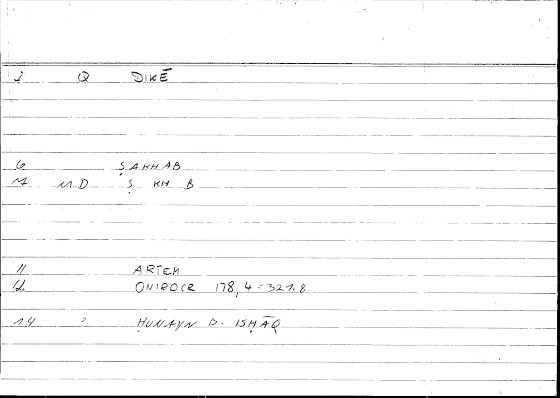 2 Q DIKĒ
6 ṢAKHAB
7 MD Ṣ KH B
11 ARTEM
12 ONIROCR 178, 4 = 321.8
14 ? ḤUNAYN B. ISḤĀQ